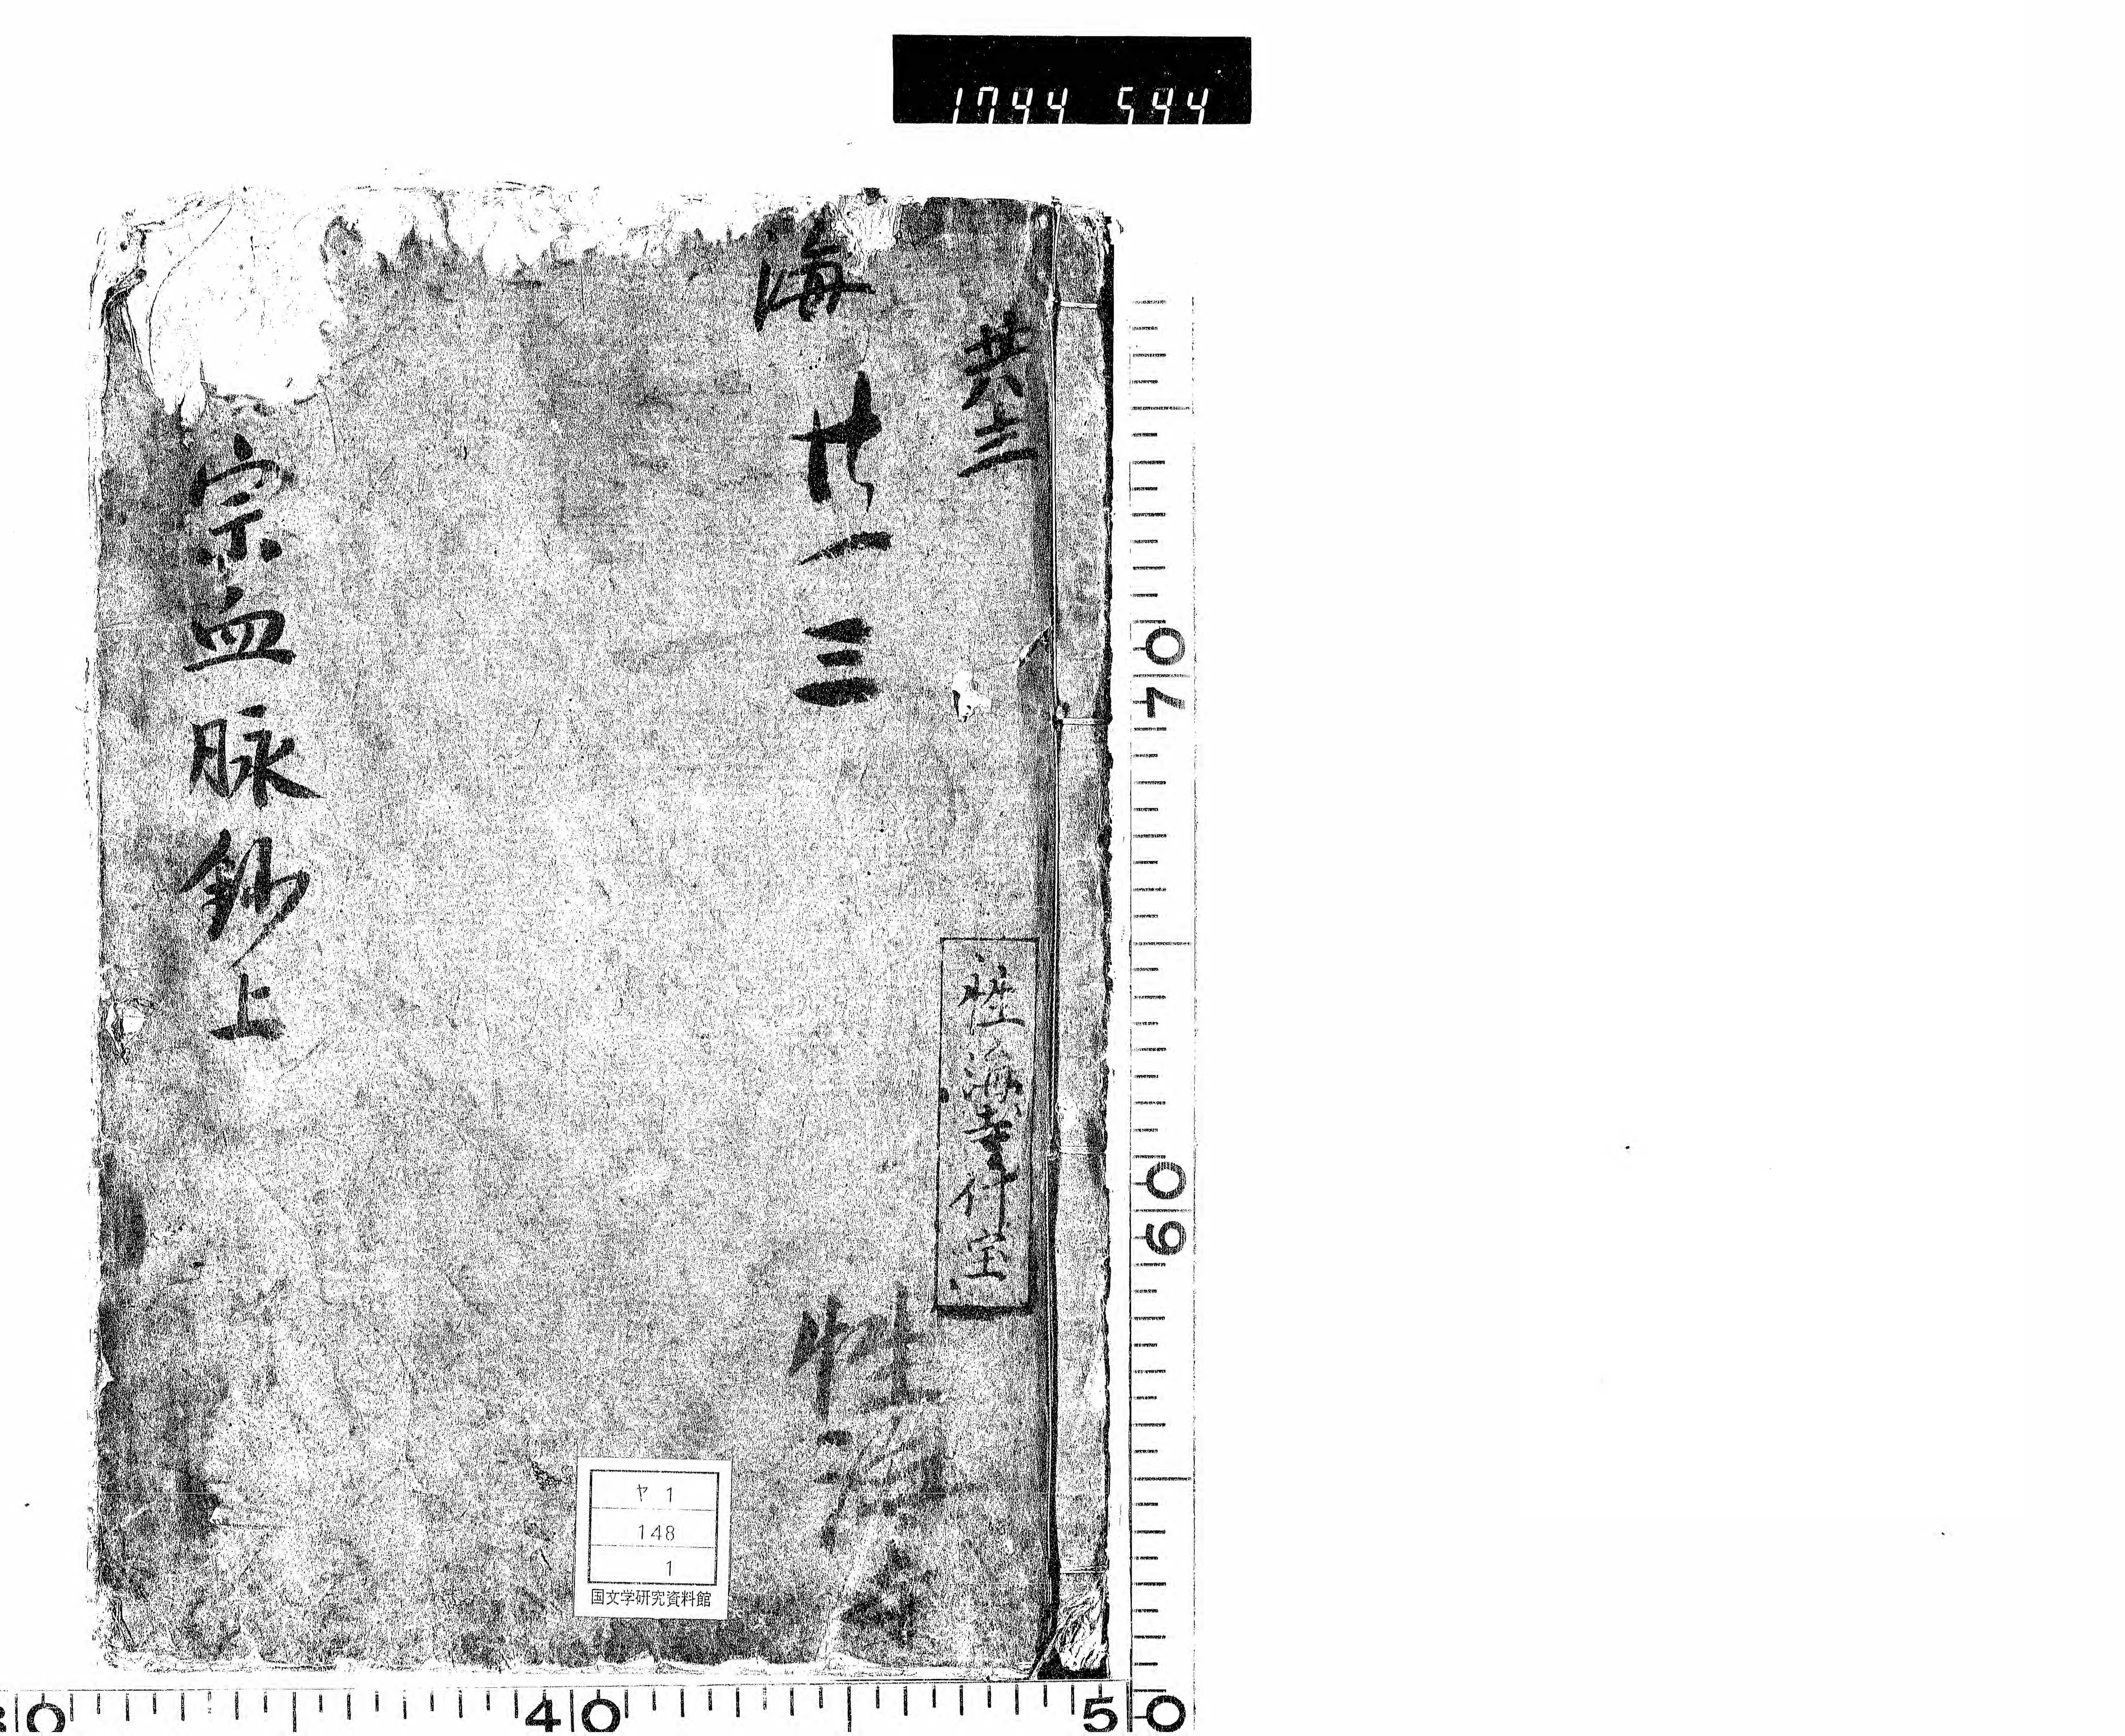 1744 544
共三
海廿一三
性海寺什宝
性海寺
宗血脉鈔上
ヤ 1
148
1
国文学研究資料館
70
60
40
50